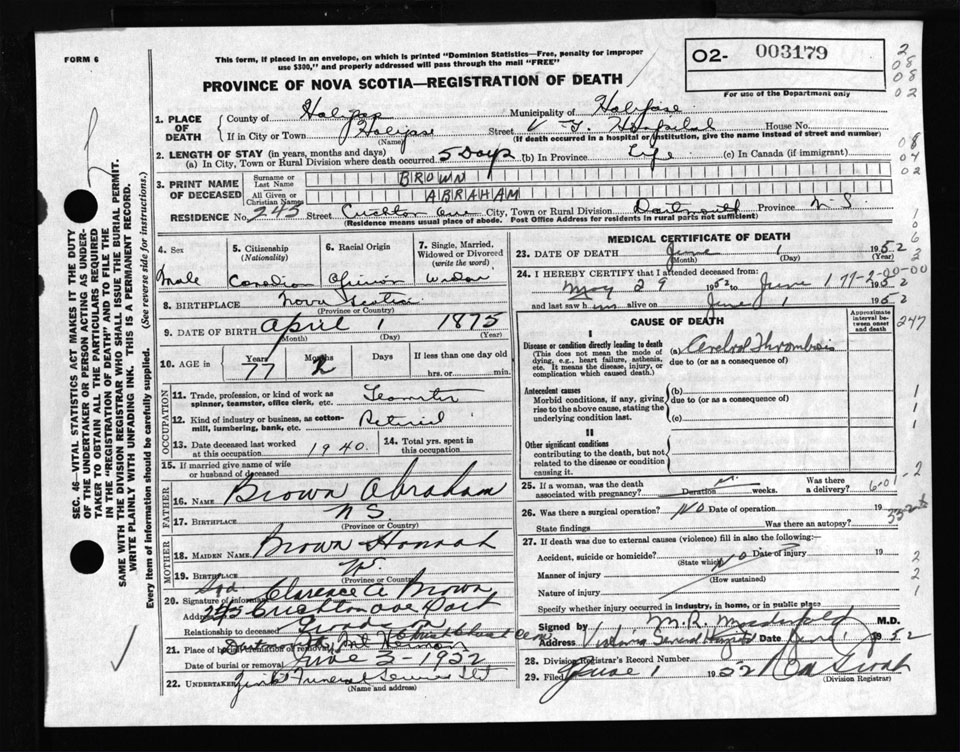 FORM 6
This form, if placed in an envelope, on which is printed "Dominion Statistics—Free, penalty for improper
use $300," and properly addressed will pass through the mail "FREE"
PROVINCE OF NOVA SCOTIA—REGISTRATION OF DEATH
O2- 003179
For use of the Department only
SEC. 46—VITAL STATISTICS ACT MAKES IT THE DUTY
OF THE UNDERTAKER OR PERSON ACTING AS UNDER-
TAKER TO OBTAIN ALL THE PARTICULARS REQUIRED
IN THE "REGISTRATION OF DEATH" AND TO FILE THE
SAME WITH THE DIVISION REGISTRAR WHO SHALL ISSUE THE BURIAL PERMIT.
WRITE PLAINLY WITH UNFADING INK. THIS IS A PERMANENT RECORD.
Every item of information should be carefully supplied. (See reverse side for instructions.)
1. PLACE OF DEATH
County of Halifax Municipality of Halifax
If in City or Town Halifax Street V. G. Hospital House No.
(Name) (If death occurred in a hospital or institution, give the name instead of street and number)
2. LENGTH OF STAY (in years, months and days)
(a) In City, Town or Rural Division where death occurred 5 Days (b) In Province Life (c) In Canada (if immigrant)
3. PRINT NAME OF DECEASED
Surname or Last Name BROWN
All Given or Christian Names ABRAHAM
RESIDENCE No. 245 Street Crichton Ave City, Town or Rural Division Dartmouth Province N.S.
(Residence means usual place of abode. Post Office Address for residents in rural parts not sufficient)
4. Sex Male
5. Citizenship (Nationality) Canadian
6. Racial Origin
7. Single, Married, Widowed or Divorced (write the word)
8. BIRTHPLACE Nova Scotia
(Province or Country)
9. DATE OF BIRTH April 1 1875
(Month) (Day) (Year)
10. AGE in Years 77 Months 2 Days If less than one day old
hrs. or min.
OCCUPATION
11. Trade, profession, or kind of work as
spinner, teamster, office clerk, etc. Teamster
12. Kind of industry or business, as cotton-
mill, lumbering, bank, etc. Retired
13. Date deceased last worked
at this occupation 1940
14. Total yrs. spent in
this occupation
15. If married give name of wife
or husband of deceased
FATHER
16. NAME Brown Abraham
17. BIRTHPLACE N S
(Province or Country)
MOTHER
18. MAIDEN NAME Brown Hannah
19. BIRTHPLACE
(Province or Country)
20. Signature of informant Clarence A Brown
Address 245 Crichton ave Dart
Relationship to deceased Grandson
21. Place of burial, cremation or removal Mt Hermon
Date of burial or removal June 3-1952
22. UNDERTAKER Funeral Service
(Name and address)
MEDICAL CERTIFICATE OF DEATH
23. DATE OF DEATH June 1 1952
(Month) (Day) (Year)
24. I HEREBY CERTIFY that I attended deceased from:
May 29 1952 to June 1 1952
and last saw him alive on June 1 1952
CAUSE OF DEATH
Approximate interval between onset and death
I
Disease or condition directly leading to death
(This does not mean the mode of
dying, e.g., heart failure, asthenia,
etc. It means the disease, injury, or
complication which caused death.)
(a) Cerebral Thrombosis
due to (or as a consequence of)
Antecedent causes
Morbid conditions, if any, giving
rise to the above cause, stating the
underlying condition last.
(b)
due to (or as a consequence of)
(c)
II
Other significant conditions
contributing to the death, but not
related to the disease or condition
causing it.
25. If a woman, was the death
associated with pregnancy? Duration weeks. Was there a delivery?
26. Was there a surgical operation? NO Date of operation 19
State findings Was there an autopsy?
27. If death was due to external causes (violence) fill in also the following:—
Accident, suicide or homicide? NO Date of injury 19
(State which)
Manner of injury
(How sustained)
Nature of injury
Specify whether injury occurred in industry, in home, or in public place
Signed by M.R. M.D.
Address Victoria General Hospital Date June 1 1952
28. Division Registrar's Record Number
29. Filed June 1 1952
(Division Registrar)